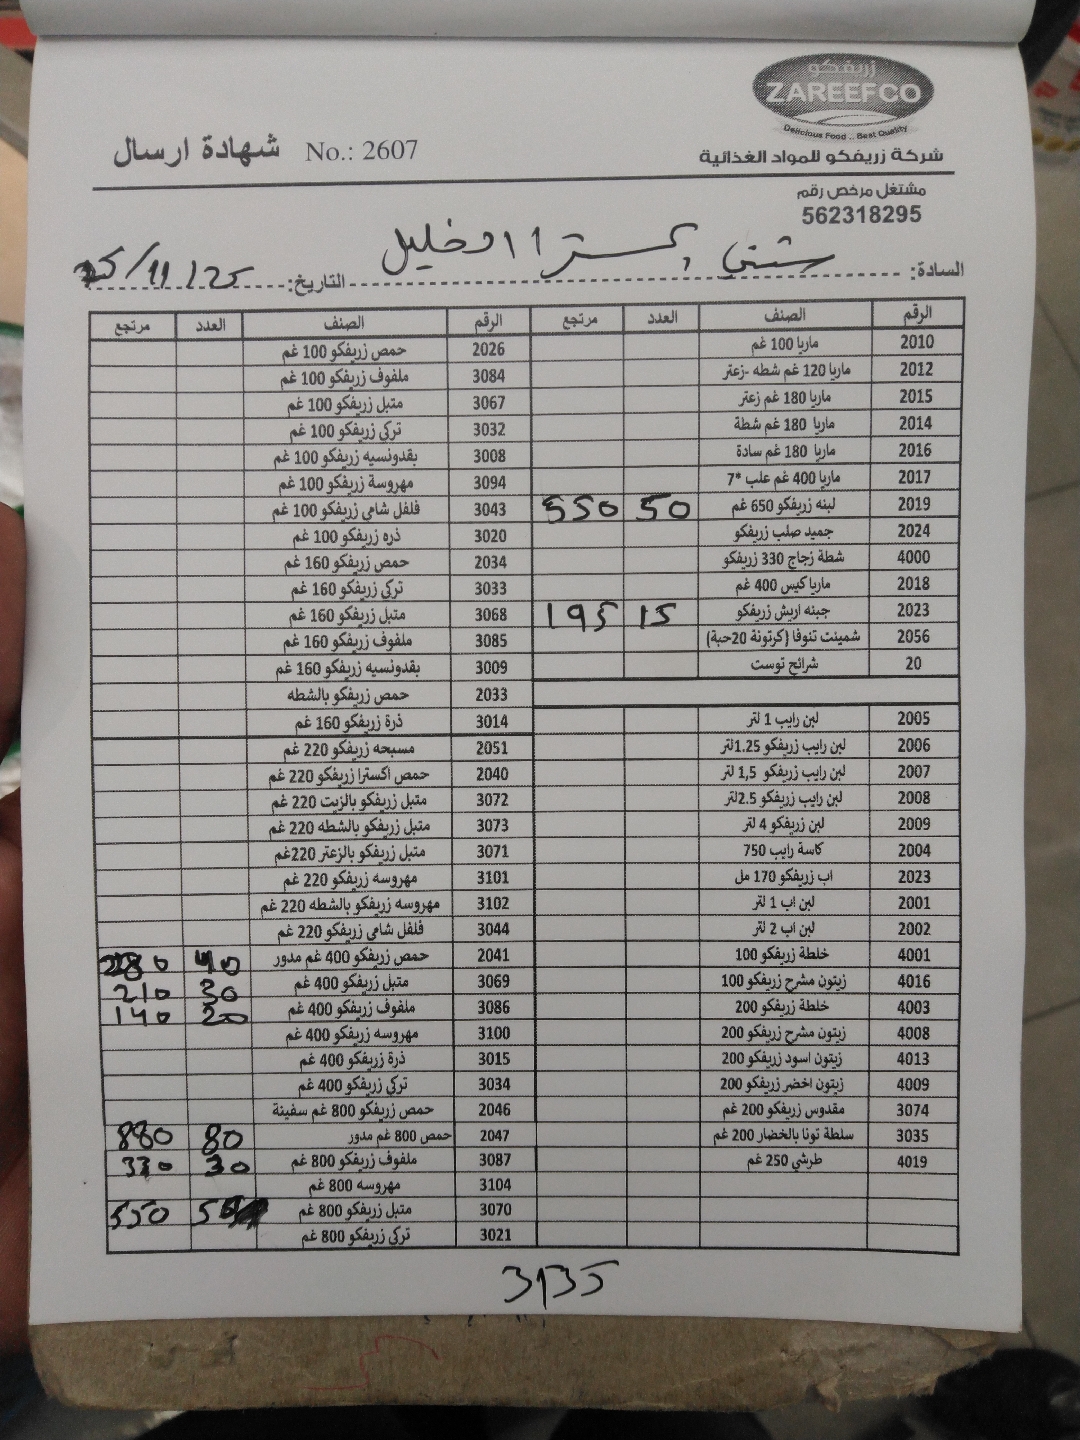 زريفكو
ZAREEFCO
Delicious Food .. Best Quality
شركة زريفكو للمواد الغذائية
شهادة ارسال No.: 2607
مشتغل مرخص رقم
562318295
السادة: التاريخ: 25/11/25
الرقم الصنف العدد مرتجع الرقم الصنف العدد مرتجع
2010 ماريا 100 غم 2026 حمص زريفكو 100 غم
2012 ماريا 120 غم شطه -زعتر 3084 ملفوف زريفكو 100 غم
2015 ماريا 180 غم زعتر 3067 متبل زريفكو 100 غم
2014 ماريا 180 غم شطة 3032 تركي زريفكو 100 غم
2016 ماريا 180 غم سادة 3008 بقدونسيه زريفكو 100 غم
2017 ماريا 400 غم علب *7 3094 مهروسة زريفكو 100 غم
2019 لبنه زريفكو 650 غم 50 550 3043 فلفل شامي زريفكو 100 غم
2024 جميد صلب زريفكو 3020 ذره زريفكو 100 غم
4000 شطة زجاج 330 زريفكو 2034 حمص زريفكو 160 غم
2018 ماريا كيس 400 غم 3033 تركي زريفكو 160 غم
2023 جبنه اريش زريفكو 15 195 3068 متبل زريفكو 160 غم
2056 شمينت تنوفا (كرتونة 20حبة) 3085 ملفوف زريفكو 160 غم
20 شرائح توست 3009 بقدونسيه زريفكو 160 غم
2033 حمص زريفكو بالشطه
2005 لبن رايب 1 لتر 3014 ذرة زريفكو 160 غم
2006 لبن رايب زريفكو 1.25لتر 2051 مسبحه زريفكو 220 غم
2007 لبن رايب زريفكو 1,5 لتر 2040 حمص اكسترا زريفكو 220 غم
2008 لبن رايب زريفكو 2.5لتر 3072 متبل زريفكو بالزيت 220 غم
2009 لبن زريفكو 4 لتر 3073 متبل زريفكو بالشطه 220 غم
2004 كاسة رايب 750 3071 متبل زريفكو بالزعتر 220غم
2023 اب زريفكو 170 مل 3101 مهروسه زريفكو 220 غم
2001 لبن اب 1 لتر 3102 مهروسه زريفكو بالشطه 220 غم
2002 لبن اب 2 لتر 3044 فلفل شامي زريفكو 220 غم
4001 خلطة زريفكو 100 2041 حمص زريفكو 400 غم مدور 40 280
4016 زيتون مشرح زريفكو 100 3069 متبل زريفكو 400 غم 30 210
4003 خلطة زريفكو 200 3086 ملفوف زريفكو 400 غم 20 140
4008 زيتون مشرح زريفكو 200 3100 مهروسه زريفكو 400 غم
4013 زيتون اسود زريفكو 200 3015 ذرة زريفكو 400 غم
4009 زيتون اخضر زريفكو 200 3034 تركي زريفكو 400 غم
3074 مقدوس زريفكو 200 غم 2046 حمص زريفكو 800 غم سفينة
3035 سلطة تونا بالخضار 200 غم 2047 حمص 800 غم مدور 80 880
4019 طرشي 250 غم 3087 ملفوف زريفكو 800 غم 30 330
3104 مهروسه 800 غم
3070 متبل زريفكو 800 غم 550
3021 تركي زريفكو 800 غم
3135